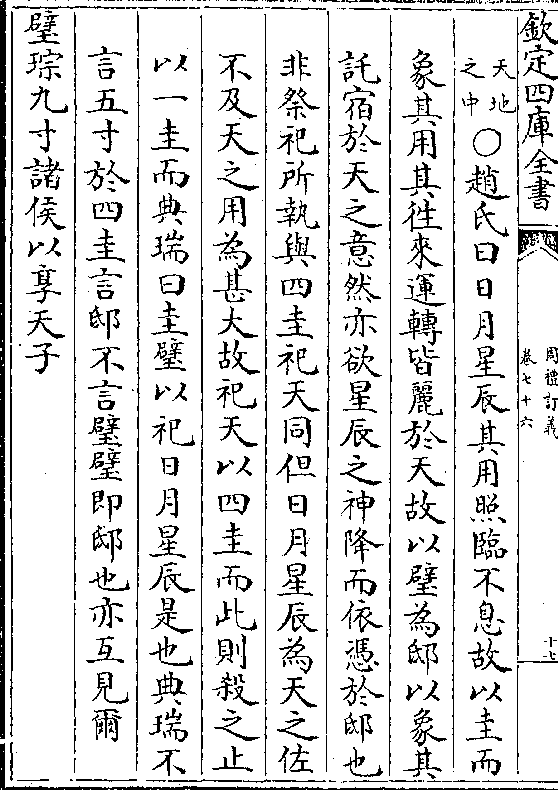 欽定四庫全書
周禮訂義
卷七十六
天地
之中
○趙氏曰日月星辰其用照臨不息故以圭而
象其用其徃來運轉皆麗於天故以璧為邸以象其
託宿於天之意然亦欲星辰之神降而依憑於邸也
非祭祀所執與四圭祀天同但日月星辰為天之佐
不及天之用為甚大故祀天以四圭而此則殺之止
以一圭而典瑞曰圭璧以祀日月星辰是也典瑞不
言五寸於四圭言邸不言璧璧即邸也亦互見爾
璧琮九寸諸侯以享天子